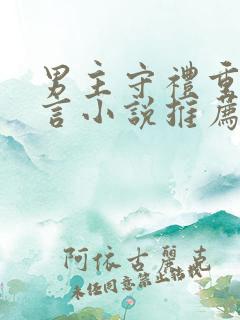 男主守禮重
言小說推薦
阿依古麗克
未经同意禁止转载